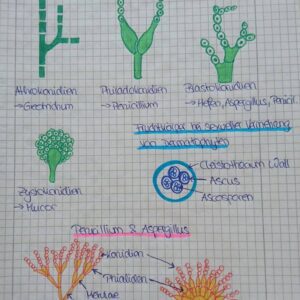 Arthrokonidien
→ Geotrichum
Phialokonidien
→ Penicillium
Blastokonidien
→ Hefen, Aspergillus, Penicil.
Fruchtkörper bei sexueller Vermehrung
von Dermatophyten
Cleistothecium Wall
Ascus
Ascosporen
Zygokonidien
→ Mucor
Penicillium & Aspergillus
Konidien
Phialiden
Metulae